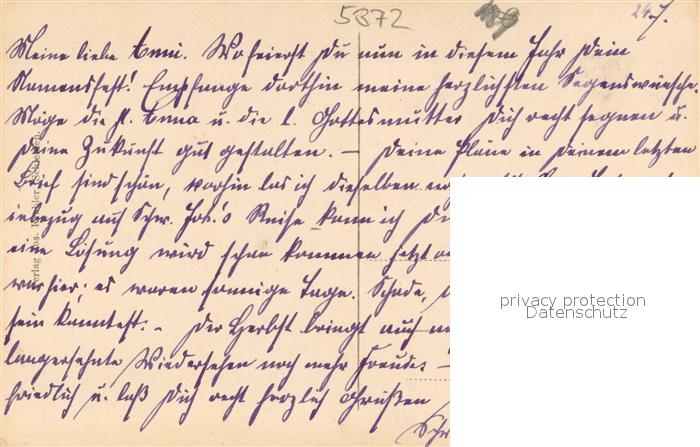 5872
24.7.
Meine liebe Anni. Wo feierst Du nun in diesem Jahr Dein
Namensfest! Empfange dorthin meine herzlichsten Segenswünsche.
Möge die hl. Anna u. die l. Gottesmutter Dich recht segnen u.
Deine Zukunft gut gestalten. – Deine Pläne in Deinem letzten
Brief sind schön, vorhin las ich dieselben
inbezug auf Schw. Jos.'s Reise kann ich
eine Lösung wird schon kommen jetzt
war hier; es waren sonnige Tage. Schade,
sein konntest. – Der Herbst bringt auch
langersehnte Wiedersehen noch mehr Freude. –
friedlich u. laß Dich recht herzlich Grüßen
Schw
Verlag Jos.
privacy protection
Datenschutz